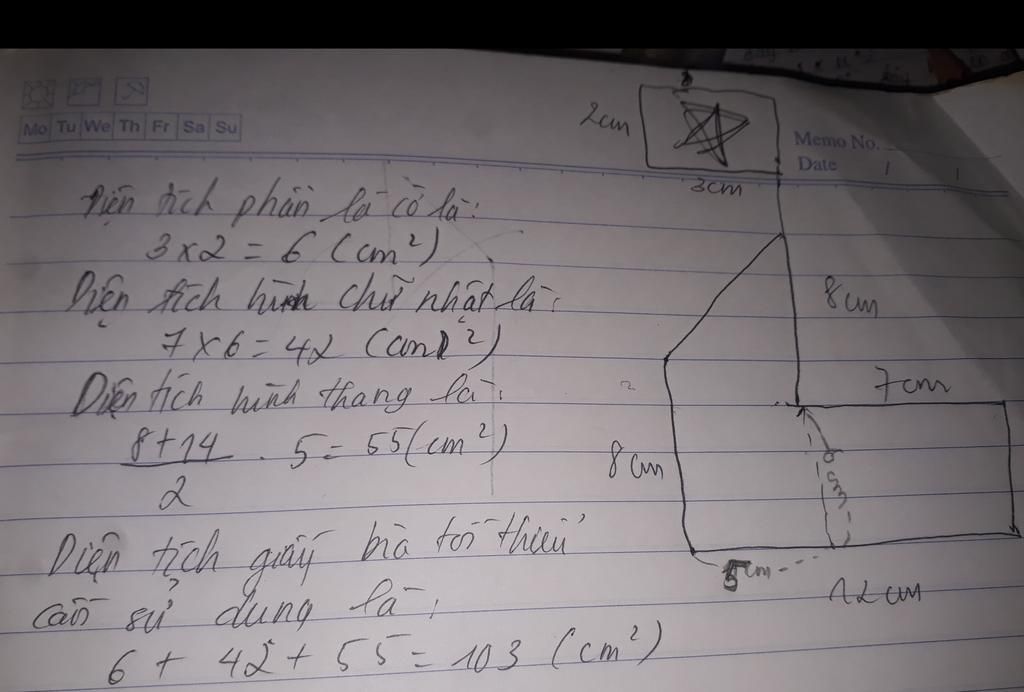 Mo Tu We Th Fr Sa Su
Memo No.
Date / /
2cm
3cm
8cm
7cm
8cm
6cm
5cm
12cm
Diện tích phần lá cờ là:
3 x 2 = 6 (cm²)
Diện tích hình chữ nhật là:
7 x 6 = 42 (cm²)
Diện tích hình thang là:
8 + 14
. 5 = 55 (cm²)
2
Diện tích giấy bìa tối thiểu
cần sử dung là:
6 + 42 + 55 = 103 (cm²)